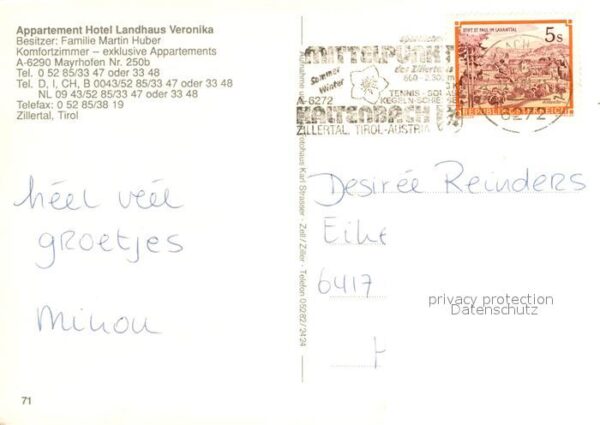 Appartement Hotel Landhaus Veronika
Besitzer: Familie Martin Huber
Komfortzimmer – exklusive Appartements
A-6290 Mayrhofen Nr. 250b
Tel. 0 52 85/33 47 oder 33 48
Tel. D, I, CH, B 0043/52 85/33 47 oder 33 48
NL 09 43/52 85/33 47 oder 33 48
Telefax: 0 52 85/38 19
Zillertal, Tirol
héél véél
groetjes
Minou
71
Fotohaus Karl Strasser - Zell/Ziller - Telefon 05282/2424
MITTELPUNKT
des Zillertal
Sommer
Winter
TENNIS - SQUAS
KEGELN - SCHIE
A-6272
KALTENBACH
ZILLERTAL, TIROL-AUSTRIA
STIFT ST. PAUL IM LAVANTTAL
5s
REPUBLIK ÖSTERREICH
6272
Desirée Reinders
Eike
6417
privacy protection
Datenschutz